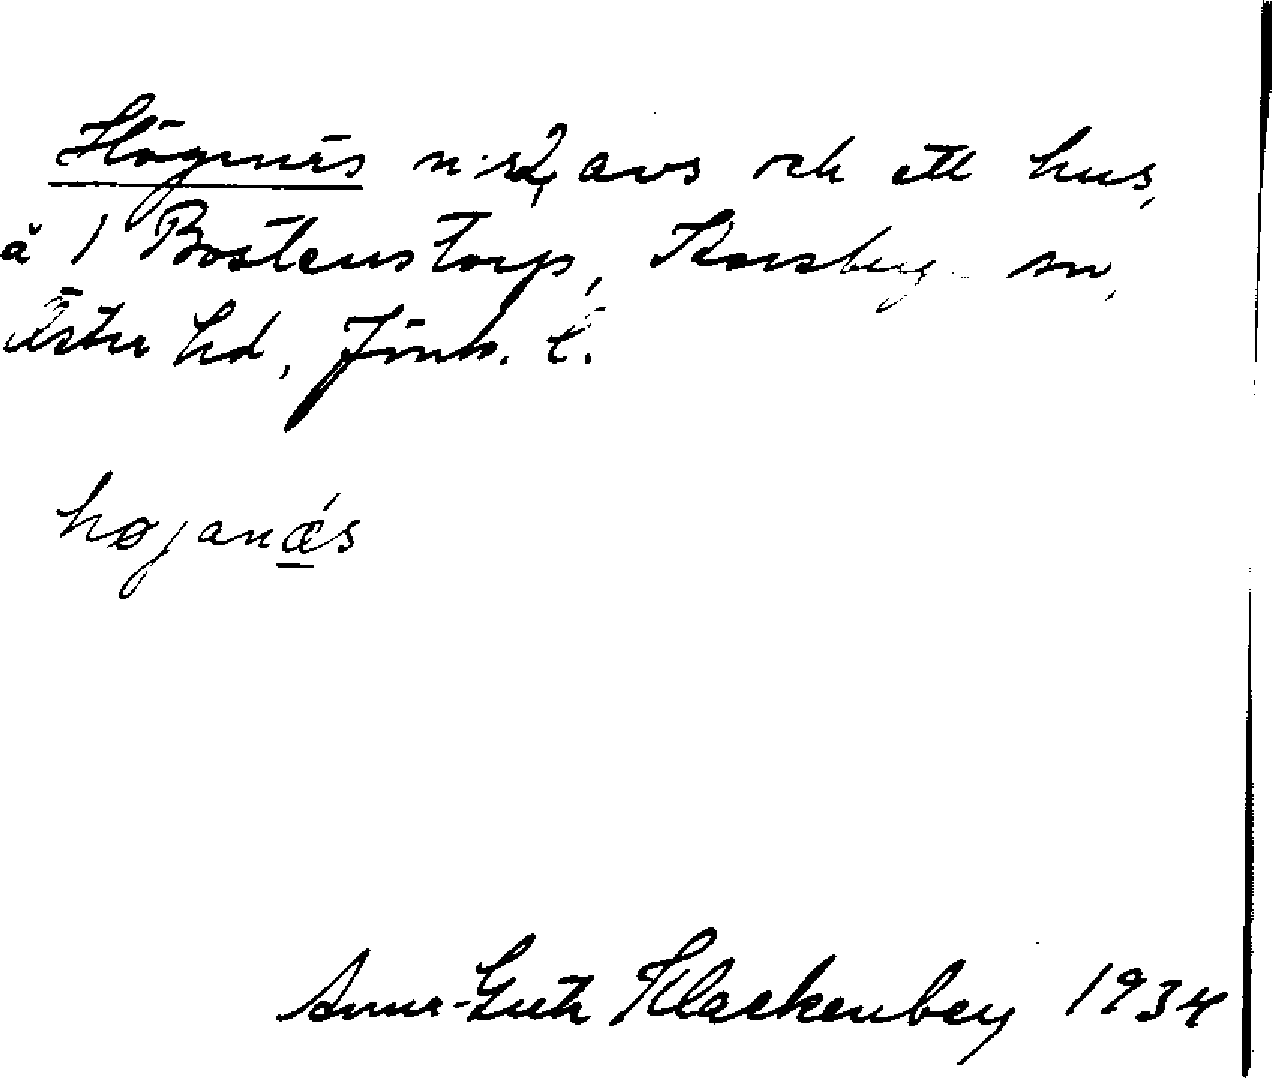 Högenäs n:r 2, avs och ett hus,
å 1 Bostenstorp, Korsby sn,
Östra hd, Jönk. l.
højanǽs
Anna-Greta Klackenberg 1934